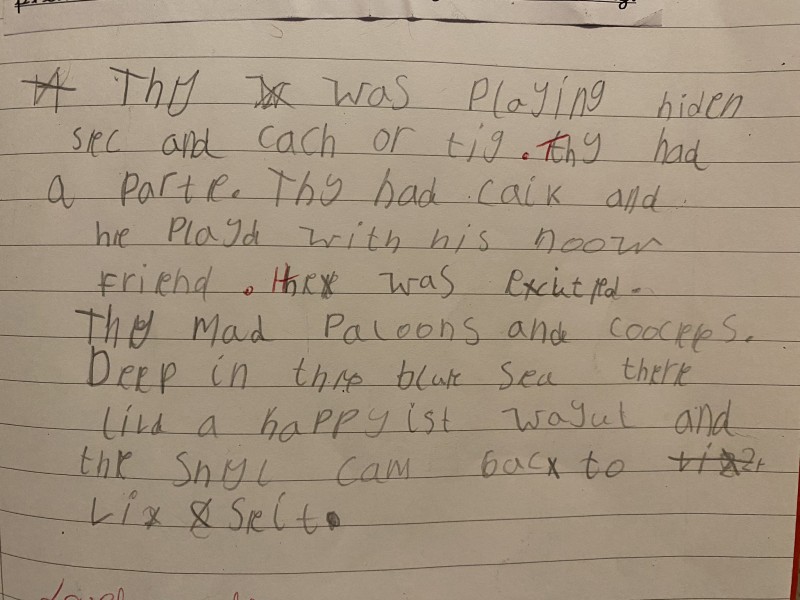 Thy was playing hiden
sec and cach or tig. thy had
a parte. Thy had caik and
he playd with his noow
friend. they was excitted.
Thy mad paloons and coocees.
Deep in the blue sea there
livd a happyist wayul and
the snyl cam back to
Lix & selt.